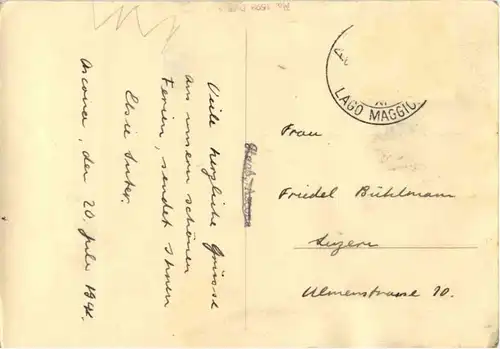 Viele herzliche Grüsse
aus unsern schönen
Ferien, sendet Ihnen
Elsie Suter.
Ascona, den 20. Juli 194
LAGO MAGGIO
Frau
Friedel Bühlmann
Luzern
Ulmenstrasse 10.